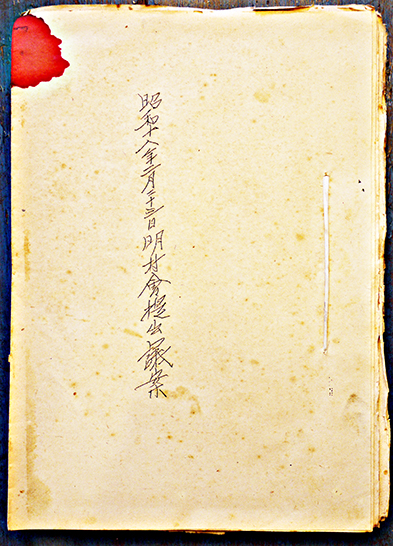 昭和十八年二月二十三日明村会提出議案